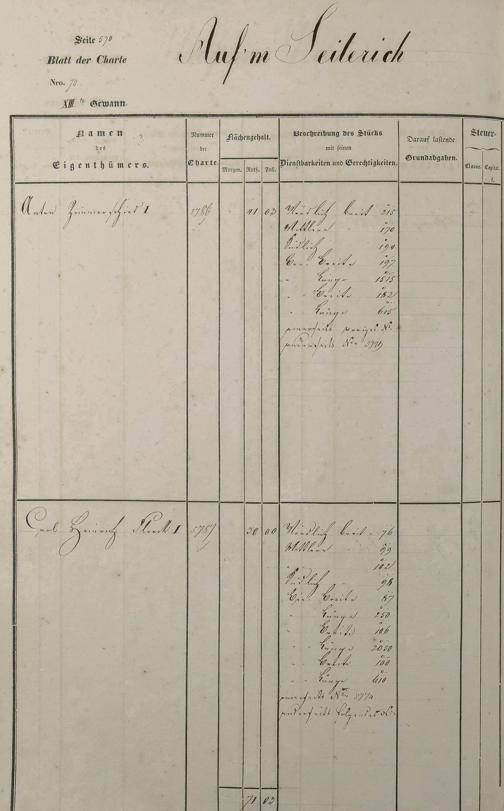 Seite 570
Auf'm Seiterich
Blatt der Charte
Nro. 70.
XIII te Gewann.
Namen des Eigenthümers.
Nummer der Charte
Flächengehalt.
Morgen. Rth. Fuß.
Beschreibung des Stücks mit seinen Dienstbarkeiten und Gerechtigkeiten.
Darauf lastende Grundabgaben.
Steuer-
Classe. Capital.
f.
Anton Zimmerschied I 1786 41 02 Nördlich breit 215
Mittlere 170
Südlich 194
Breite 197
Länge 1515
Breite 182
Länge 615
einerseits voriges N.
anderseits Nro
Carl Heinrich Fluck I 1787 30 00 Nördlich breit 76
Mittlere 99
102
Südlich 98
Breite 87
Länge 250
Breite 106
Länge 2050
Breite 100
Länge 610
einerseits Nro
anderseits folgendes N.
71 02